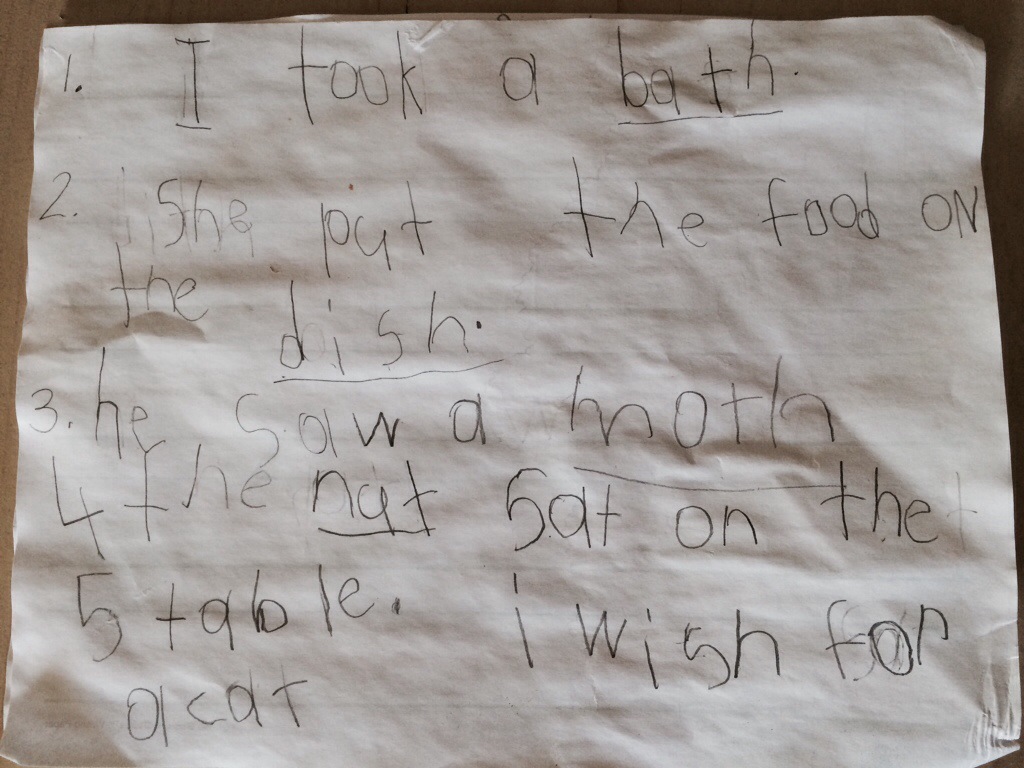 1. I took a bath.
2. She put the food on
the dish.
3. he saw a moth
4 the nut sat on the
5 table. i wish for
a cat